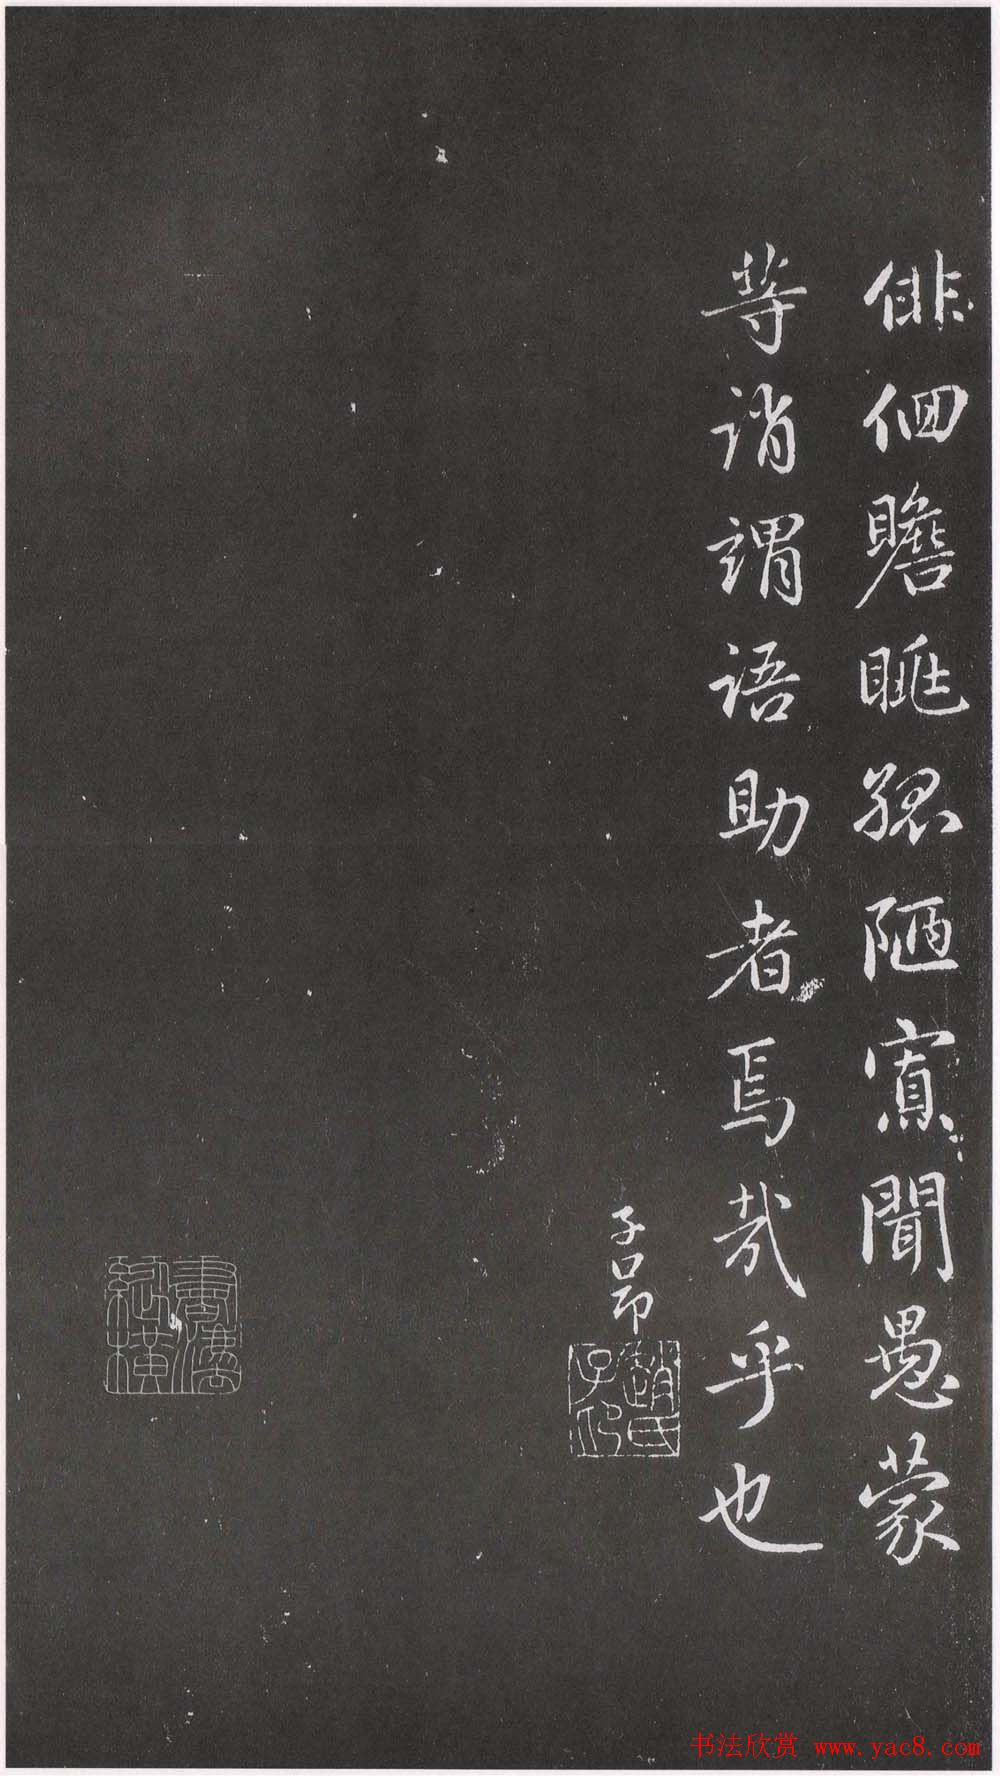 俳佪瞻眺孤陋寡聞愚蒙
等誚謂語助者焉哉乎也
子昂
趙氏子印
書法欣赏 www.yac8.com